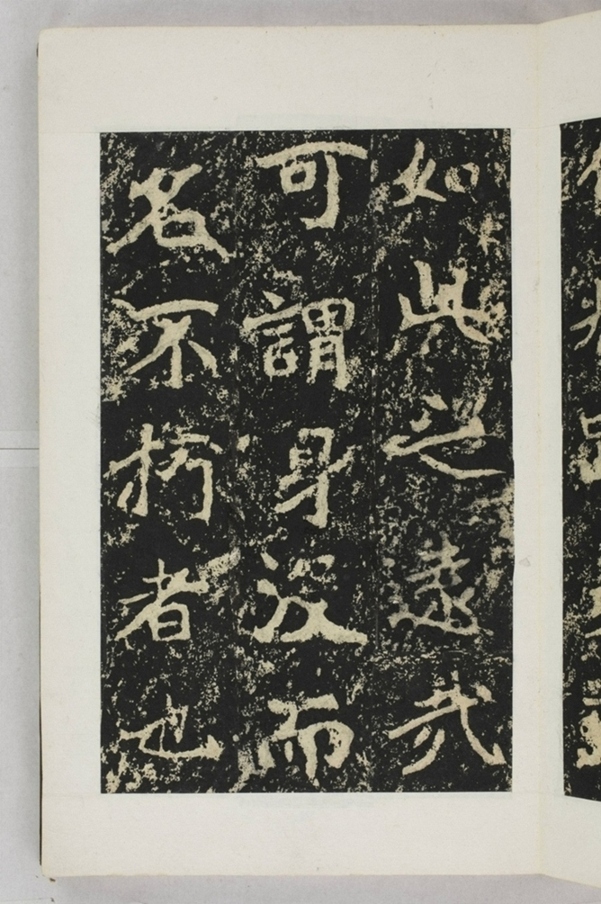 如此之遠哉
可謂身没而
名不朽者也